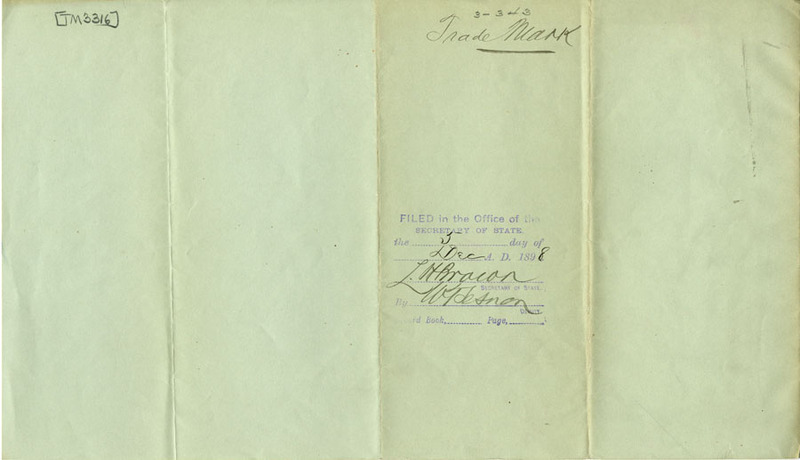 [TM3316]
3-343
Trade Mark
FILED in the Office of the
SECRETARY OF STATE
the 5 day of
Dec A. D. 1898
L. H. Brown
SECRETARY OF STATE.
By
DEPUTY
rd Book, Page,